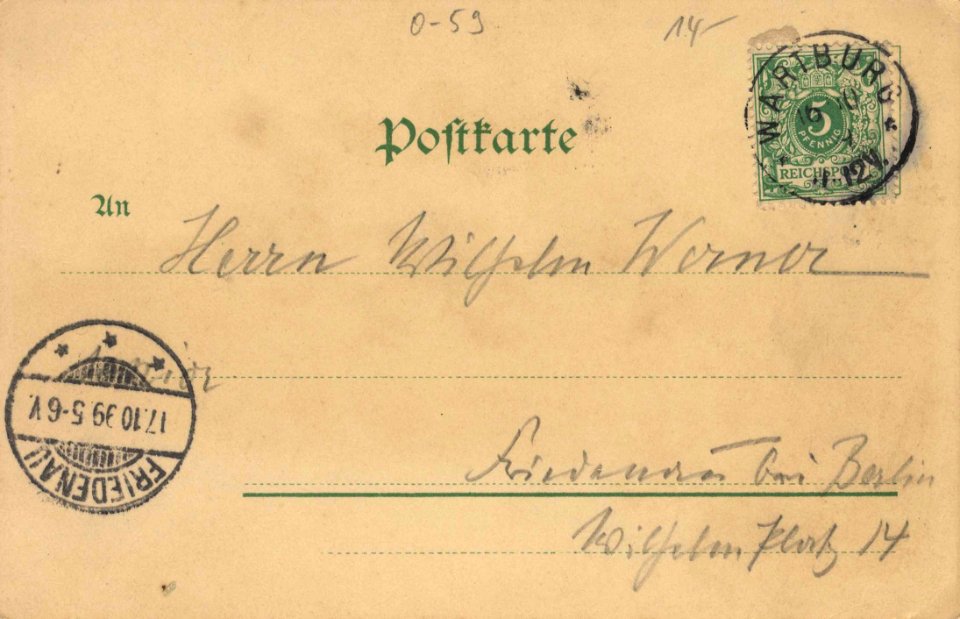 0-59 14-
Postkarte
WARTBURG
16 10
5
PFENNIG
REICHSPOST
12V.
An
Herrn Wilhelm Werner
FRIEDENAU
17.10.99 5-6V.
Friedenau bei Berlin
Wilhelm Platz 14